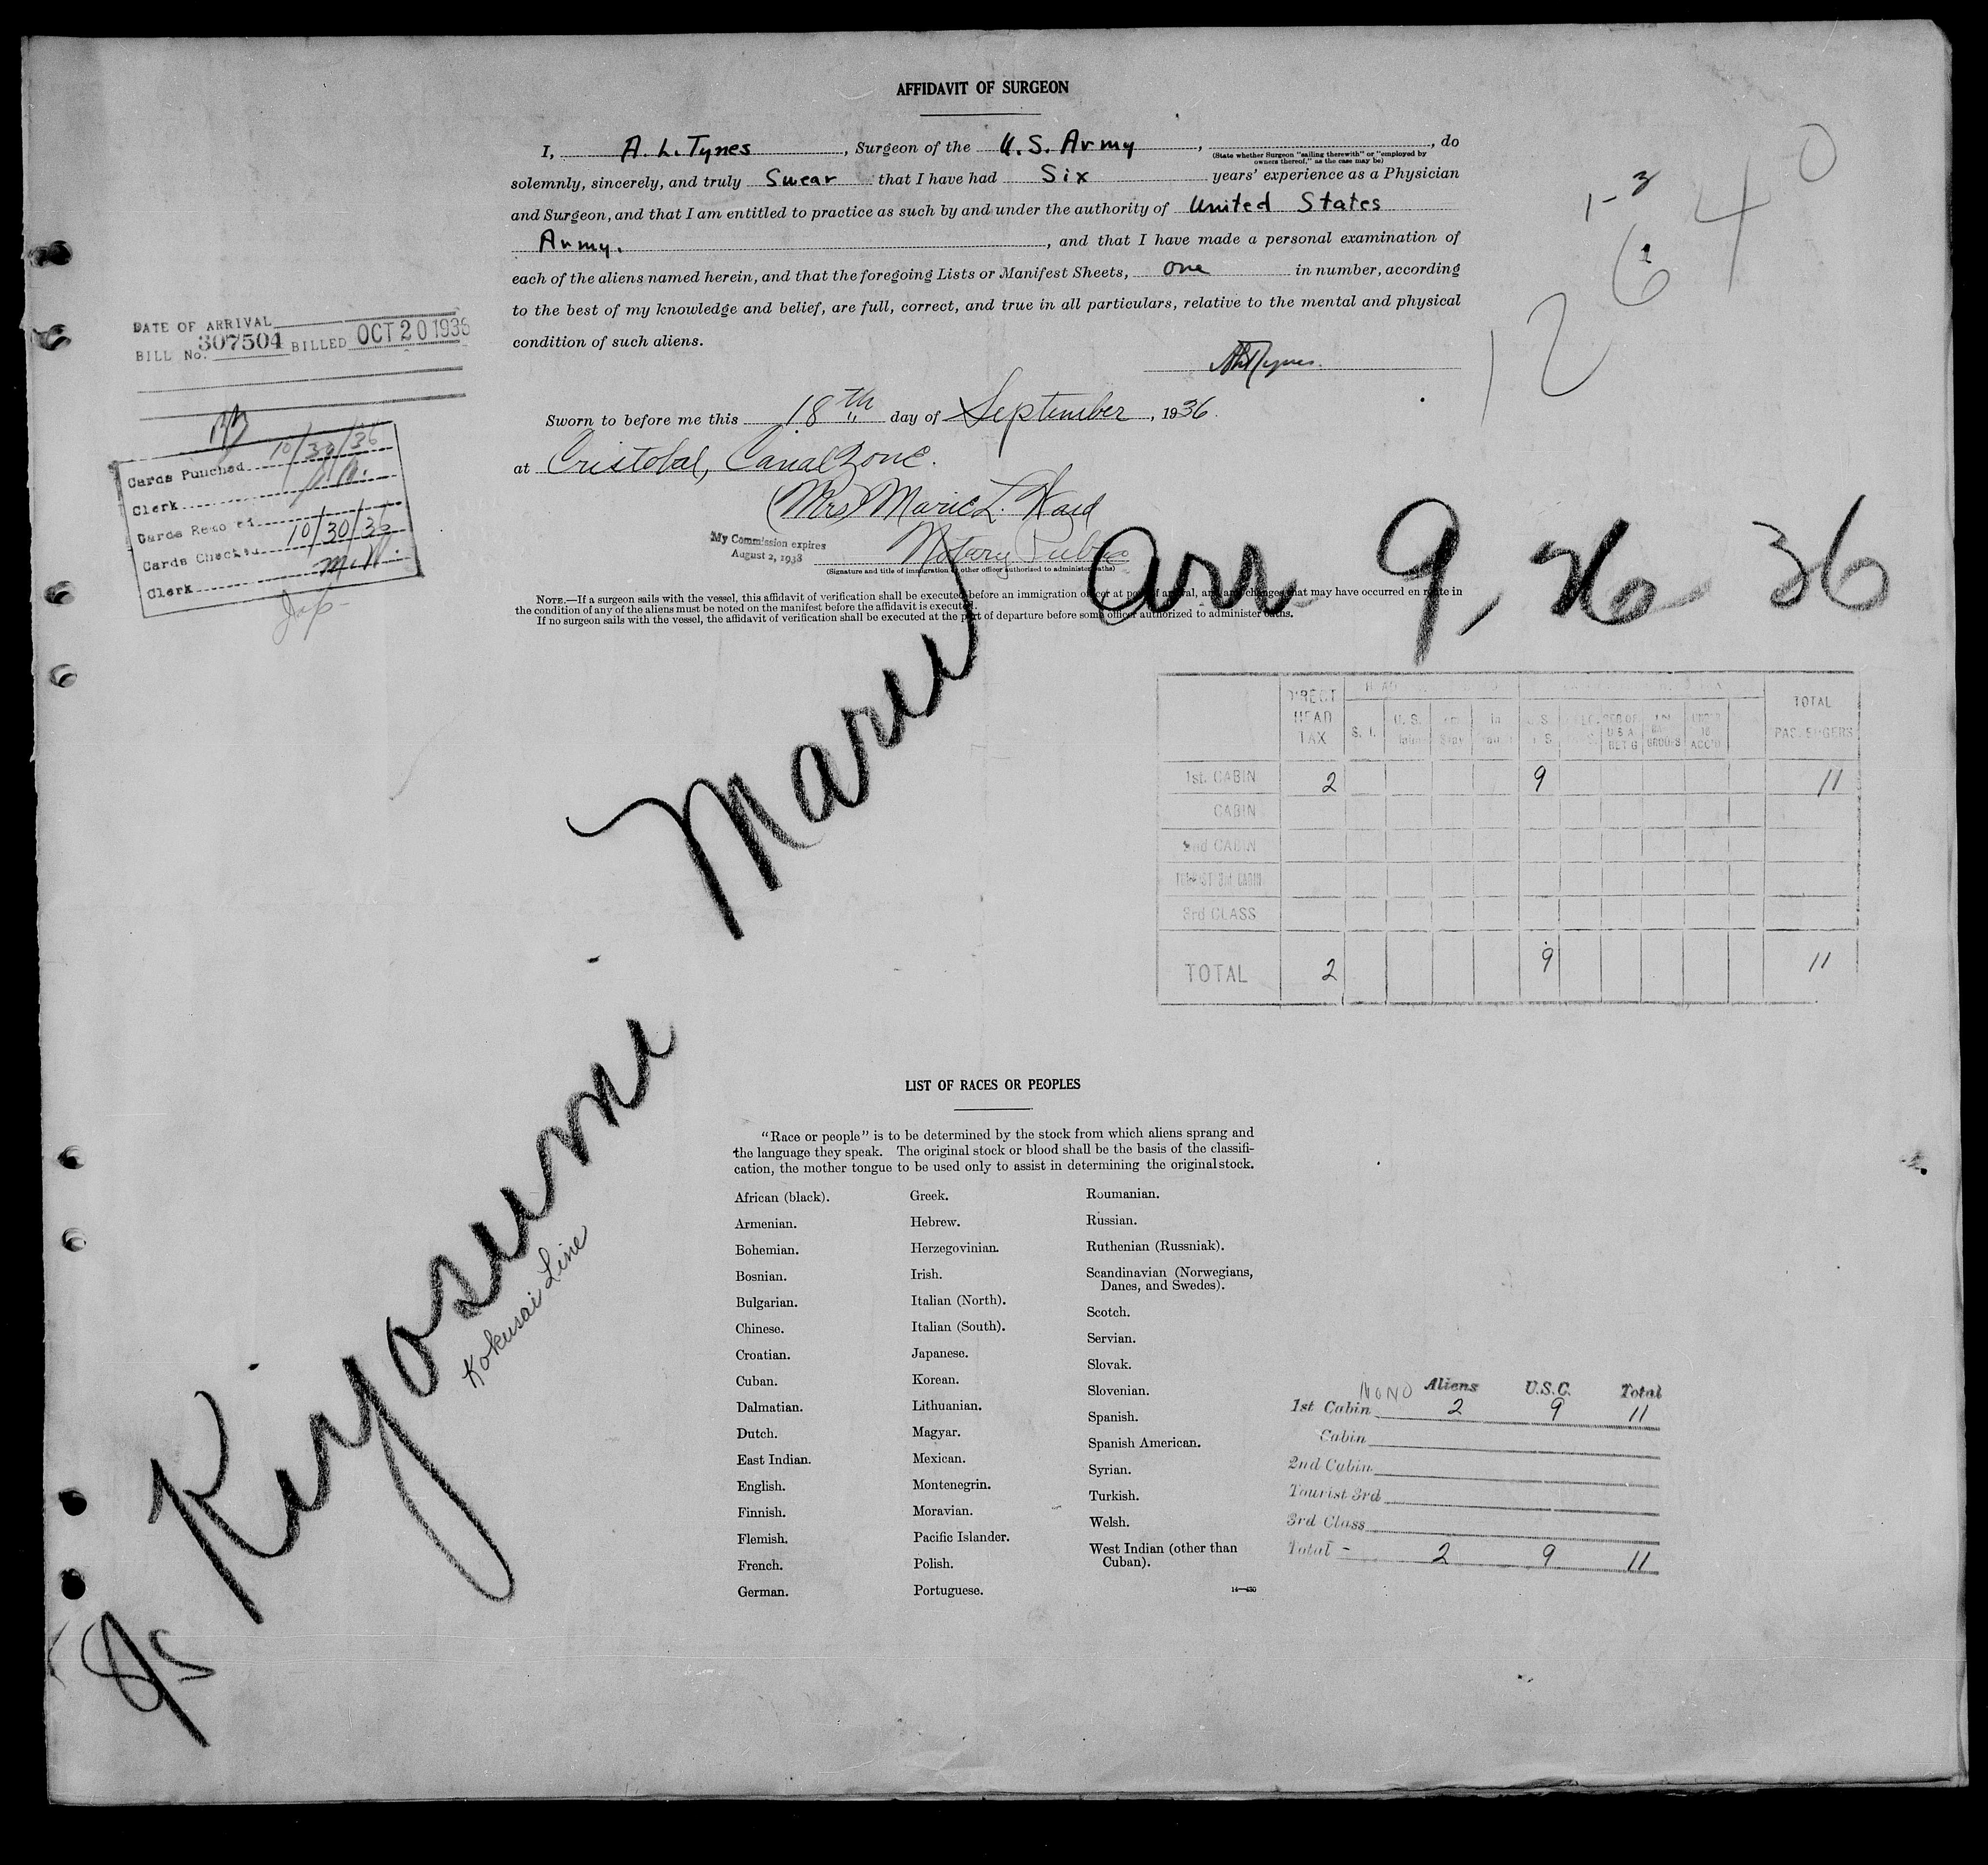 AFFIDAVIT OF SURGEON
I, A. L. Tynes, Surgeon of the U.S. Army, , do
(State whether Surgeon "sailing therewith" or "employed by
owners thereof," as the case may be)
solemnly, sincerely, and truly Swear that I have had Six years' experience as a Physician
and Surgeon, and that I am entitled to practice as such by and under the authority of United States
Army. , and that I have made a personal examination of
each of the aliens named herein, and that the foregoing Lists or Manifest Sheets, one in number, according
to the best of my knowledge and belief, are full, correct, and true in all particulars, relative to the mental and physical
condition of such aliens.
A L Tynes.
Sworn to before me this 18th day of September, 1936.
at Cristobal, Canal Zone.
(Mrs) Marie L. Ward
Notary Public
My Commission expires
August 2, 1938
(Signature and title of immigration or other officer authorized to administer oaths)
NOTE.—If a surgeon sails with the vessel, this affidavit of verification shall be executed before an immigration officer at port of arrival, and any changes that may have occurred en route in
the condition of any of the aliens must be noted on the manifest before the affidavit is executed.
If no surgeon sails with the vessel, the affidavit of verification shall be executed at the port of departure before some officer authorized to administer oaths.
1-3
6
1
4
0
12
DATE OF ARRIVAL
BILL No. 307504 BILLED OCT 20 1936
Cards Punched 10/30/36
Clerk
Cards Checked 10/30/36
Clerk M.W.
Jap-
Arr 9, 26 36
S/S Kiyosumi Maru
Kokusai Line
DIRECT HEAD TAX
S. I.
U. S.
TOTAL PASSENGERS
1st. CABIN 2 9 11
CABIN
2nd CABIN
TOURIST 3rd CABIN
3rd CLASS
TOTAL 2 9 11
LIST OF RACES OR PEOPLES
"Race or people" is to be determined by the stock from which aliens sprang and
the language they speak. The original stock or blood shall be the basis of the classifi-
cation, the mother tongue to be used only to assist in determining the original stock.
African (black).
Armenian.
Bohemian.
Bosnian.
Bulgarian.
Chinese.
Croatian.
Cuban.
Dalmatian.
Dutch.
East Indian.
English.
Finnish.
Flemish.
French.
German.
Greek.
Hebrew.
Herzegovinian.
Irish.
Italian (North).
Italian (South).
Japanese.
Korean.
Lithuanian.
Magyar.
Mexican.
Montenegrin.
Moravian.
Pacific Islander.
Polish.
Portuguese.
Roumanian.
Russian.
Ruthenian (Russniak).
Scandinavian (Norwegians,
Danes, and Swedes).
Scotch.
Servian.
Slovak.
Slovenian.
Spanish.
Spanish American.
Syrian.
Turkish.
Welsh.
West Indian (other than
Cuban).
14—430
Aliens U.S.C. Total
1st Cabin 2 9 11
Cabin
2nd Cabin
Tourist 3rd
3rd Class
Total - 2 9 11